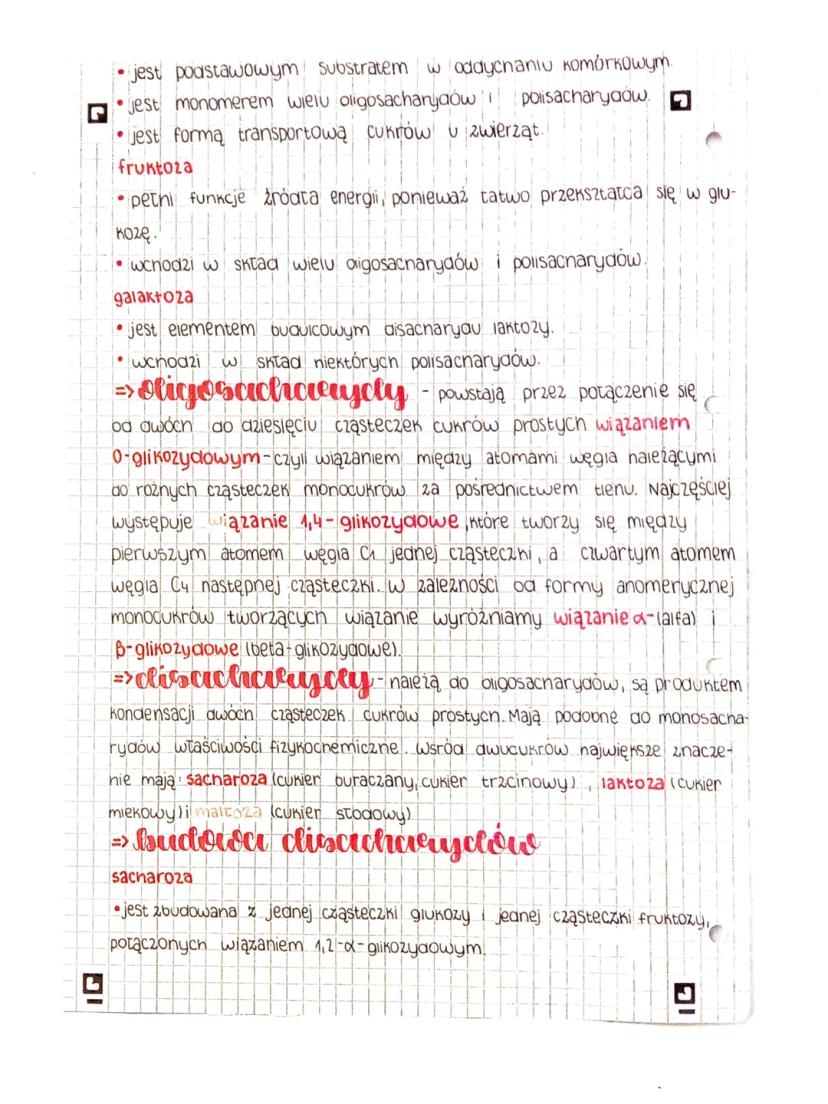 • jest podstawowym substratem w oddychaniu komórkowym.
• jest monomerem wielu oligosacharydów i polisacharydów.
• jest formą transportową cukrów u zwierząt.
fruktoza
• pełni funkcje źródła energii, ponieważ łatwo przekształca się w glu-
kozę.
• wchodzi w skład wielu oligosacharydów i polisacharydów.
galaktoza
• jest elementem budulcowym disacharydu laktozy.
• wchodzi w skład niektórych polisacharydów.
=> oligosacharydy - powstają przez połączenie się
od dwóch do dziesięciu cząsteczek cukrów prostych wiązaniem
O-glikozydowym - czyli wiązaniem między atomami węgla należącymi
do różnych cząsteczek monocukrów za pośrednictwem tlenu. Najczęściej
występuje wiązanie 1,4-glikozydowe, które tworzy się między
pierwszym atomem węgla C1 jednej cząsteczki, a czwartym atomem
węgla C4 następnej cząsteczki. W zależności od formy anomerycznej
monocukrów tworzących wiązanie wyróżniamy wiązanie α-(alfa) i
β-glikozydowe (beta-glikozydowe).
=> disacharydy - należą do oligosacharydów, są produktem
kondensacji dwóch cząsteczek cukrów prostych. Mają podobne do monosacha-
rydów właściwości fizykochemiczne. Wśród dwucukrów największe znacze-
nie mają: sacharoza (cukier buraczany, cukier trzcinowy), laktoza (cukier
mlekowy) i maltoza (cukier słodowy)
=> budowa disacharydów
sacharoza
• jest zbudowana z jednej cząsteczki glukozy i jednej cząsteczki fruktozy,
połączonych wiązaniem 1,2-α-glikozydowym.